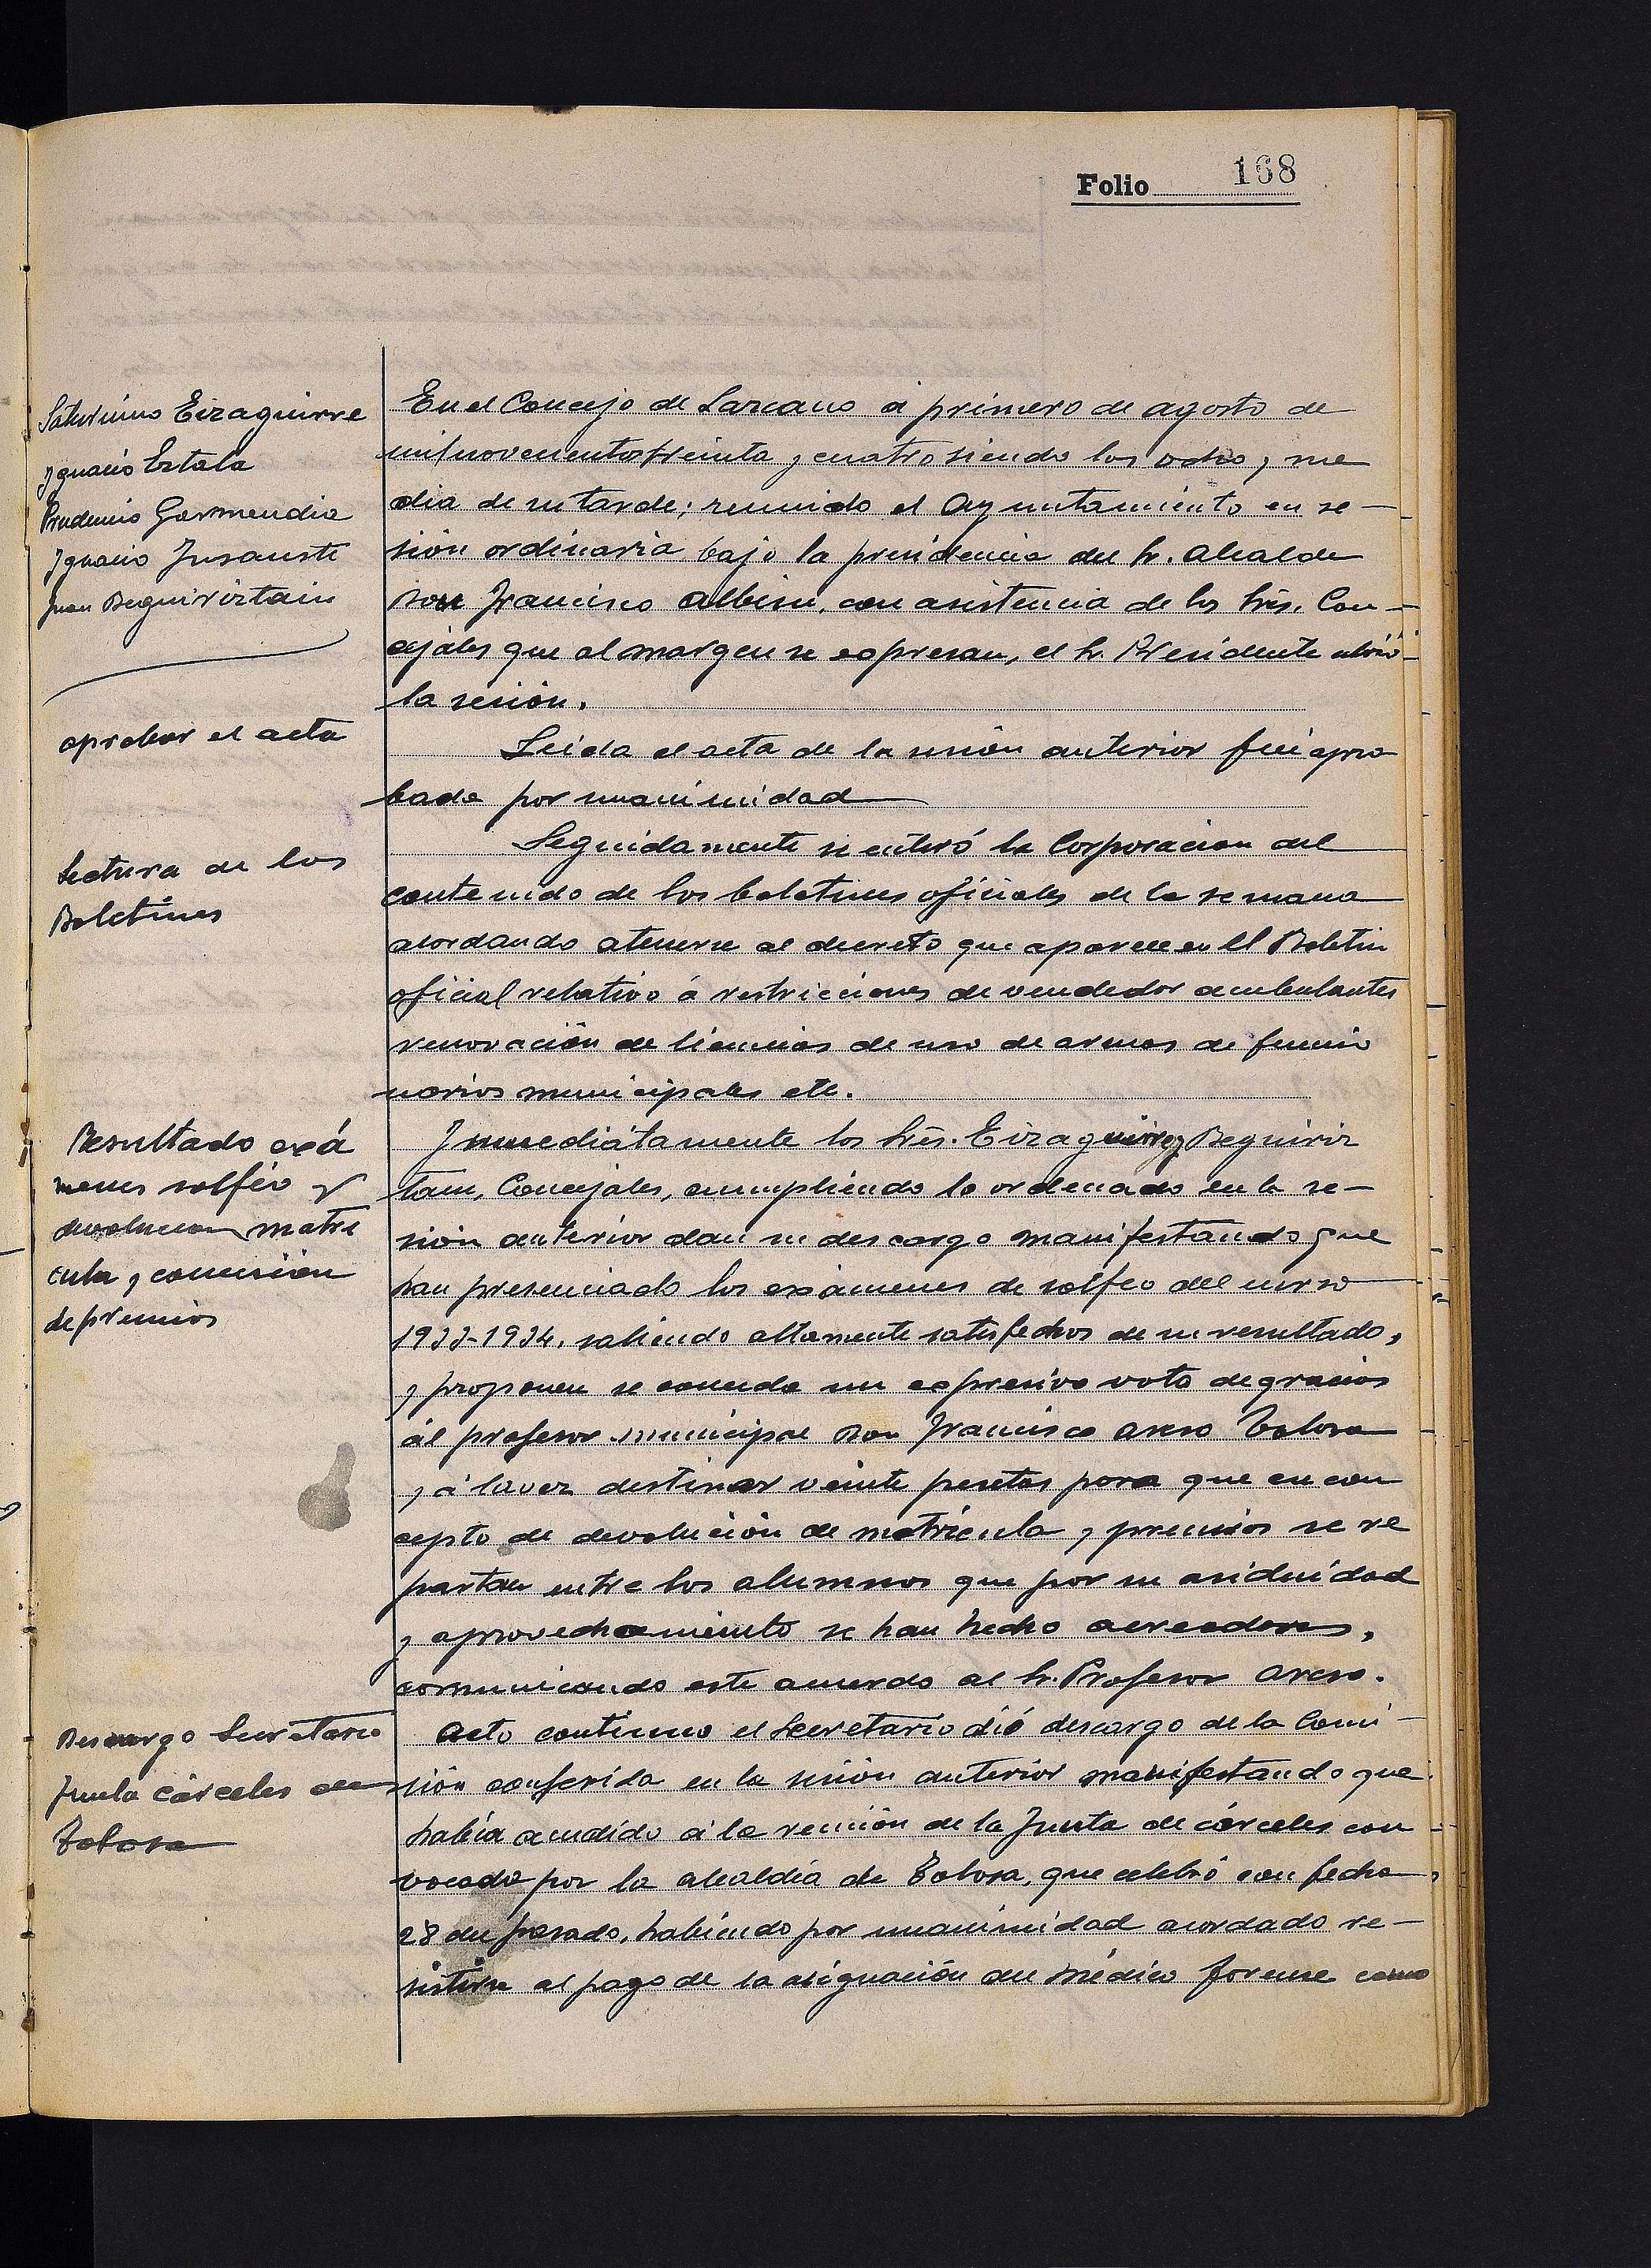 Folio 168
Saturnino Eizaguirre
Ignacio Estala
Prudencio Garmendia
Ignacio Insausti
Juan Beguiristain
aprobar el acta
Lectura de los
Boletines
Resultado exá
menes solfeo y
devolucion matri
cula y concesión
de premios
Descargo Secretario
Junta cárceles de
Tolosa
En el Concejo de Lazcano á primero de agosto de
mil novecientos treinta y cuatro siendo las ocho y me
dia de su tarde; reunido el Ayuntamiento en se-
sión ordinaria bajo la presidencia del Sr. Alcalde
Don Francisco Albisu, con asistencia de los Srés. Con-
cejales que al margen se expresan, el Sr. Presidente abrió
la sesión.
Leida el acta de la sesión anterior fué apro
bada por unanimidad
Seguidamente se enteró la Corporacion del
contenido de los boletines oficiales de la semana
acordando atenerse al decreto que aparece en el Boletin
oficial relativo á restricciones de vendedor ambulantes
renovación de licencias de uso de armas de funcio
narios municipales etc.
Inmediátamente los Srés. Eizaguirre y Beguiriz
tain, Concejales, cumpliendo lo ordenado en la se-
sión anterior dan su descargo manifestando que
han presenciado los exámenes de solfeo del curso
1933-1934, saliendo altamente satisfechos de su resultado,
y proponen se conceda un expresivo voto de gracias
ál profesor municipal Don Francisco Areso Tolosa
y á la vez destinar veinte pesetas para que en con
cepto de devolución de matrícula y premios se re
partan entre los alumnos que por su asiduidad
y aprovechamiento se han hecho acreedores,
comunicando este acuerdo al Sr. Profesor Areso.
Acto continuo el Secretario dió descargo de la Comi-
sión conferida en la sesión anterior manifestando que
habia acudido á la reunión de la Junta de cárceles con-
vocada por la alcaldía de Tolosa, que celebró con fecha
28 del pasado, habiendo por unanimidad acordado re-
sistirse al pago de la asignación del médico forense como